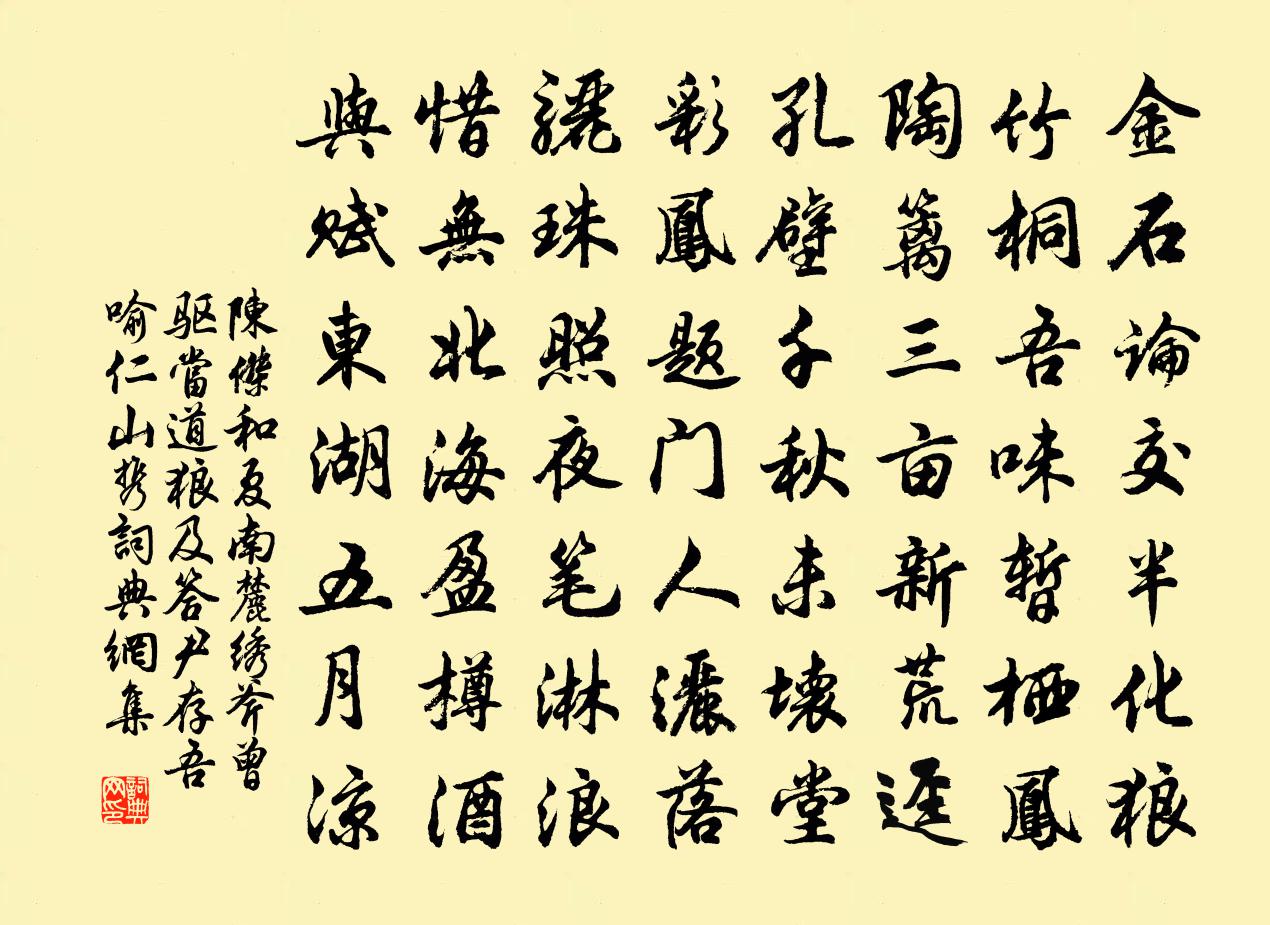 金石論交半化狼
竹桐吾味暫栖鳳
陶篱三亩新荒逕
孔壁千秋未壞堂
彩鳳題门人灑落
驪珠照夜笔淋浪
惜無北海盈樽酒
與賦東湖五月凉
陳傑和夏南麓绣斧曾
驱當道狼及答尹存吾
喻仁山
詞典網集
詞典网印